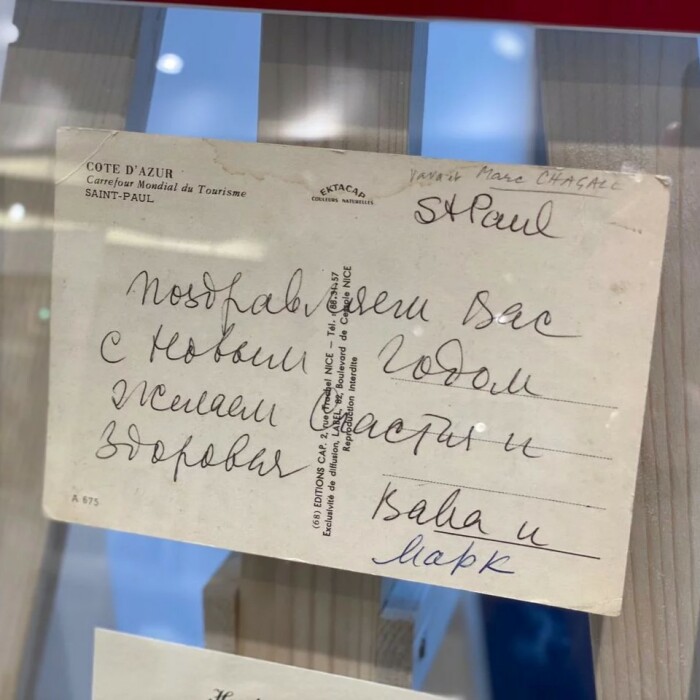 COTE D'AZUR
Carrefour Mondial du Tourisme
SAINT-PAUL
EKTACAP
COULEURS NATURELLES
Marc CHAGALL
St Paul
поздравляем Вас
с Новым Годом
Желаем Счастья и
Здоровья
Вава и
Марк
(68) EDITIONS CAP. 2, rue NICE — Tél. 88.31.57
Exclusivité de diffusion, LABEL, 82, Boulevard de Cessole NICE
Reproduction Interdite
A 675